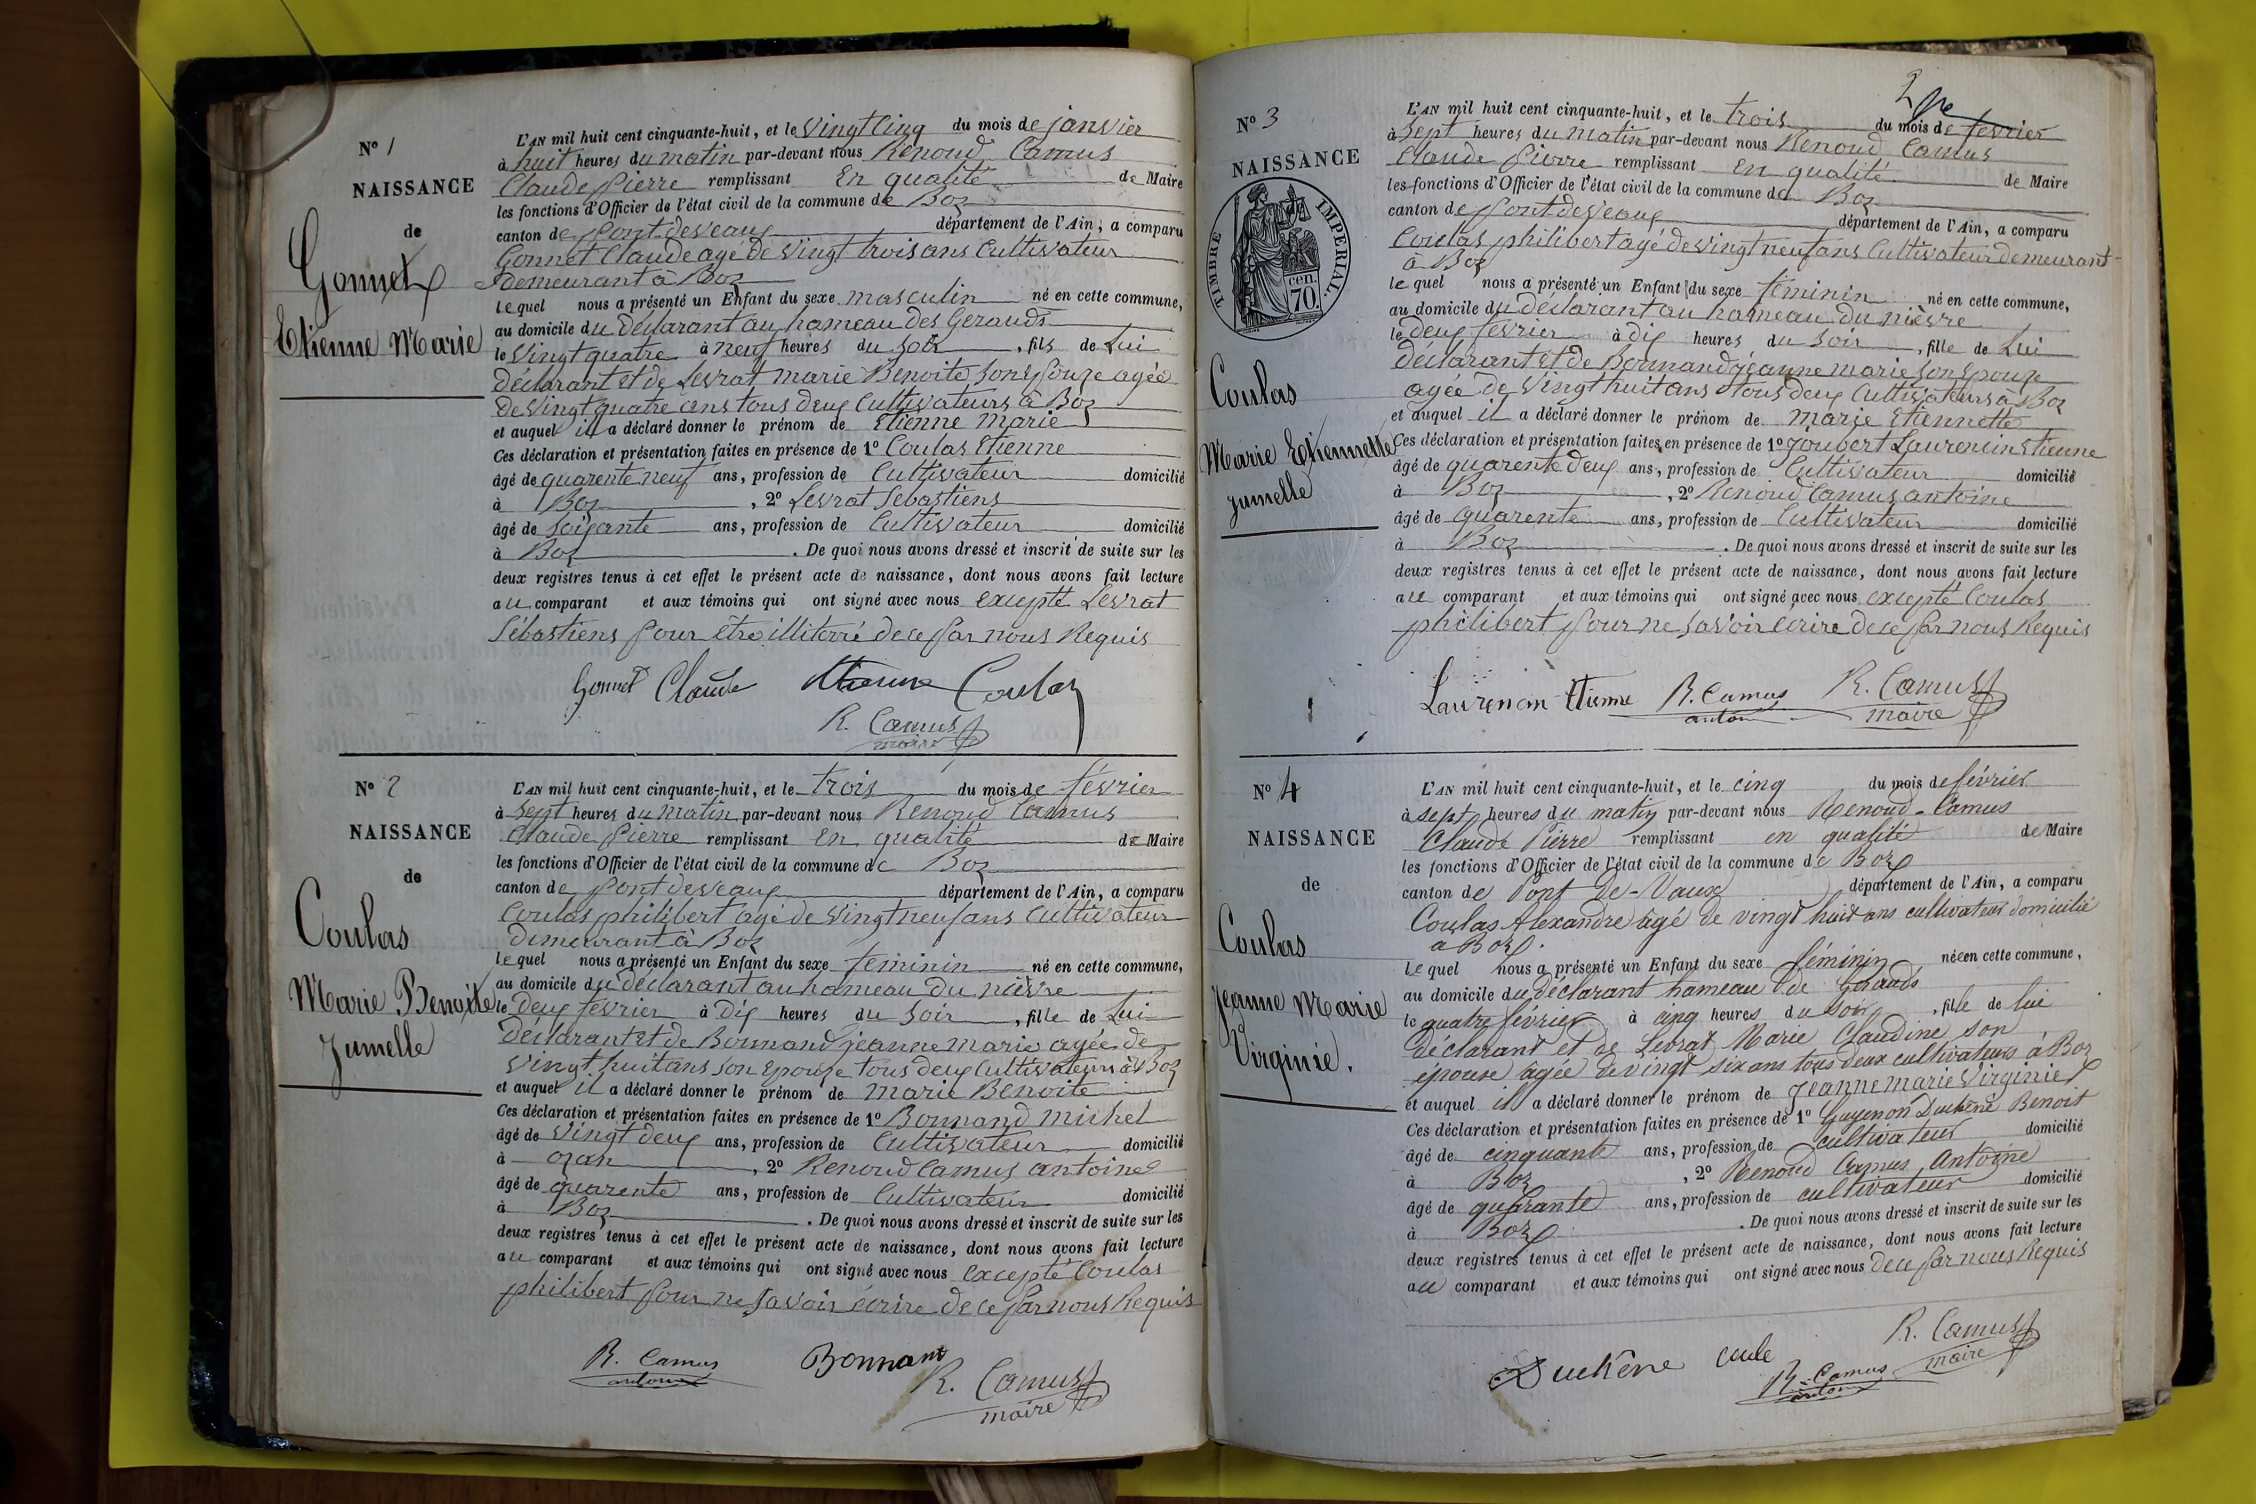 N° 1
NAISSANCE
de
Gonnet
Etienne Marie
L'AN mil huit cent cinquante-huit, et le vingt cinq du mois de janvier
à huit heures du matin par-devant nous Renoud Camus
Claude Pierre remplissant en qualité de Maire
les fonctions d'Officier de l'état civil de la commune de Boz
canton de pont deveaux département de l'Ain, a comparu
Gonnet Claude agé de vingt trois ans Cultivateur
demeurant à Boz
le quel nous a présenté un Enfant du sexe masculin né en cette commune,
au domicile du déclarant au hameau des Gerauds
le vingt quatre à neuf heures du soir, fils de Lui
déclarant et de Levrat marie Benoite son Epouze agée
de vingt quatre ans tous deux Cultivateurs à Boz
et auquel il a déclaré donner le prénom de Etienne Marie
Ces déclaration et présentation faites en présence de 1° Coulas Etienne
âgé de quarente neuf ans, profession de Cultivateur domicilié
à Boz, 2° Levrat Sebastiens
âgé de soixante ans, profession de Cultivateur domicilié
à Boz. De quoi nous avons dressé et inscrit de suite sur les
deux registres tenus à cet effet le présent acte de naissance, dont nous avons fait lecture
au comparant et aux témoins qui ont signé avec nous excepté Levrat
Sébastiens pour être illiterré de ce par nous Requis
Gonnet Claude Etienne Coulas
R. Camus
maire
N° 2
NAISSANCE
de
Coulas
Marie Benoite
Jumelle
L'AN mil huit cent cinquante-huit, et le trois du mois de février
à sept heures du matin par-devant nous Renoud Camus
Claude Pierre remplissant en qualité de Maire
les fonctions d'Officier de l'état civil de la commune de Boz
canton de pont deveaux département de l'Ain, a comparu
Coulas philibert agé de vingt neuf ans Cultivateur
demeurant à Boz
le quel nous a présenté un Enfant du sexe feminin né en cette commune,
au domicile du déclarant au hameau du nièvre
le deux février à dix heures du soir, fille de Lui
déclarant et de Bonnand jeanne marie agée de
vingt huit ans son epouze tous deux Cultivateurs à Boz
et auquel il a déclaré donner le prénom de marie Benoite
Ces déclaration et présentation faites en présence de 1° Bonnand michel
âgé de vingt deux ans, profession de Cultivateur domicilié
à ozan, 2° Renoud Camus antoine
âgé de quarente ans, profession de Cultivateur domicilié
à Boz. De quoi nous avons dressé et inscrit de suite sur les
deux registres tenus à cet effet le présent acte de naissance, dont nous avons fait lecture
au comparant et aux témoins qui ont signé avec nous excepté Coulas
philibert pour ne savoir écrire de ce par nous Requis
R. Camus Bonnant
antoine
R. Camus
maire
2
N° 3
NAISSANCE
TIMBRE IMPERIAL.
70. cen.
Coulas
Marie Etiennette
jumelle
L'AN mil huit cent cinquante-huit, et le trois du mois de février
à sept heures du matin par-devant nous Renoud Camus
Claude Pierre remplissant en qualité de Maire
les fonctions d'Officier de l'état civil de la commune de Boz
canton de pont deveaux département de l'Ain, a comparu
Coulas philibert agé de vingt neuf ans Cultivateur demeurant
à Boz
le quel nous a présenté un Enfant du sexe féminin né en cette commune,
au domicile du déclarant au hameau du nièvre
le deux février à dix heures du soir, fille de Lui
déclarant et de Bonnand jeanne marie son epouze
agée de vingt huit ans tous deux Cultivateurs à Boz
et auquel il a déclaré donner le prénom de marie Etiennette
Ces déclaration et présentation faites en présence de 1° Joubert Laurencin Etienne
âgé de quarente deux ans, profession de Cultivateur domicilié
à Boz, 2° Renoud Camus antoine
âgé de quarente ans, profession de Cultivateur domicilié
à Boz. De quoi nous avons dressé et inscrit de suite sur les
deux registres tenus à cet effet le présent acte de naissance, dont nous avons fait lecture
au comparant et aux témoins qui ont signé avec nous excepté Coulas
philibert pour ne savoir écrire de ce par nous Requis
Laurencin Etienne R. Camus R. Camus
antoine maire
N° 4
NAISSANCE
de
Coulas
Jeanne Marie
Virginie.
L'AN mil huit cent cinquante-huit, et le cinq du mois de février
à sept heures du matin par-devant nous Renoud-Camus
Claude Pierre remplissant en qualité de Maire
les fonctions d'Officier de l'état civil de la commune de Boz
canton de Pont de-Vaux département de l'Ain, a comparu
Coulas Alexandre agé de vingt huit ans cultivateur domicilié
a Boz.
le quel nous a présenté un Enfant du sexe féminin née en cette commune,
au domicile du déclarant hameau de Gerauds
le quatre février à cinq heures du soir, fille de lui
déclarant et de Levrat Marie Claudine son
épouse agée de vingt six ans tous deux cultivateurs à Boz
et auquel il a déclaré donner le prénom de Jeanne marie Virginie
Ces déclaration et présentation faites en présence de 1° Guyenon Duchene Benoit
âgé de cinquante ans, profession de cultivateur domicilié
à Boz, 2° Renoud Camus Antoine
âgé de quarante ans, profession de cultivateur domicilié
à Boz. De quoi nous avons dressé et inscrit de suite sur les
deux registres tenus à cet effet le présent acte de naissance, dont nous avons fait lecture
au comparant et aux témoins qui ont signé avec nous de ce par nous Requis
R. Camus
maire
Duchêne R. Camus
antoine